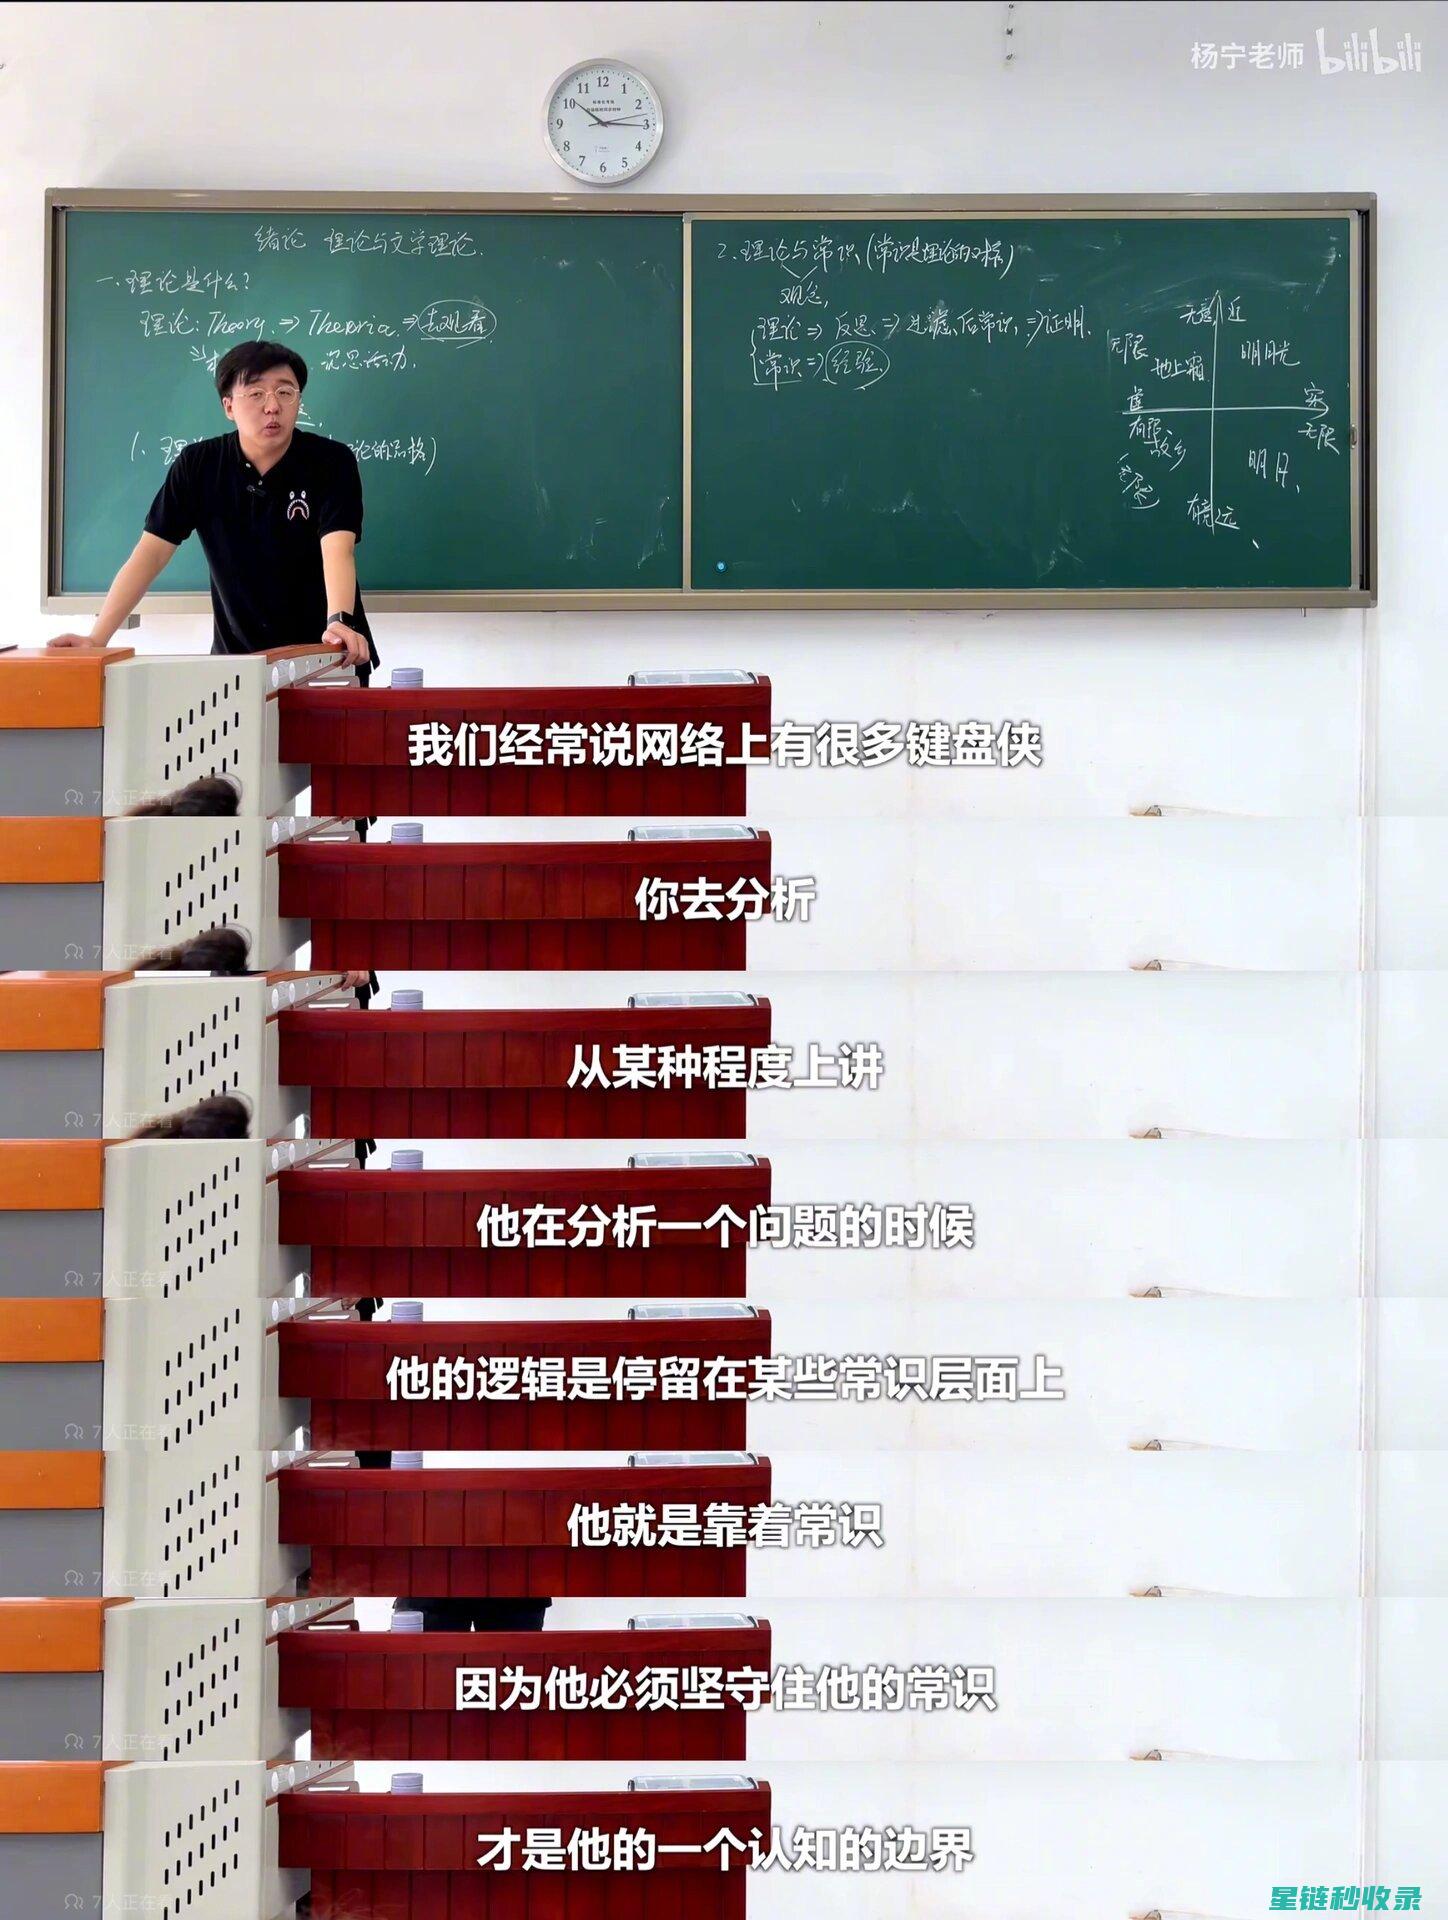 杨宁老师 bilibili
绪论 理论与文学理论.
一.理论是什么?
理论: Theory. => Theoria => 去观看
沉思活动.
1. 理论的品格)
2.理论与常识.(常识是理论的对搭)
观念,
理论 => 反思 => 过滤后常识 => 证明.
常识 => 经验.
无意 近
无限
地上霜
明月光
虚
实
有限
故乡
无限
明月
有意 远
我们经常说网络上有很多键盘侠
7人正在看
你去分析
7人正在看
从某种程度上讲
7人正在看
他在分析一个问题的时候
7人正在看
他的逻辑是停留在某些常识层面上
7人正在看
他就是靠着常识
7人正在看
因为他必须坚守住他的常识
7人正在看
才是他的一个认知的边界
7人正在看
星链秒收录